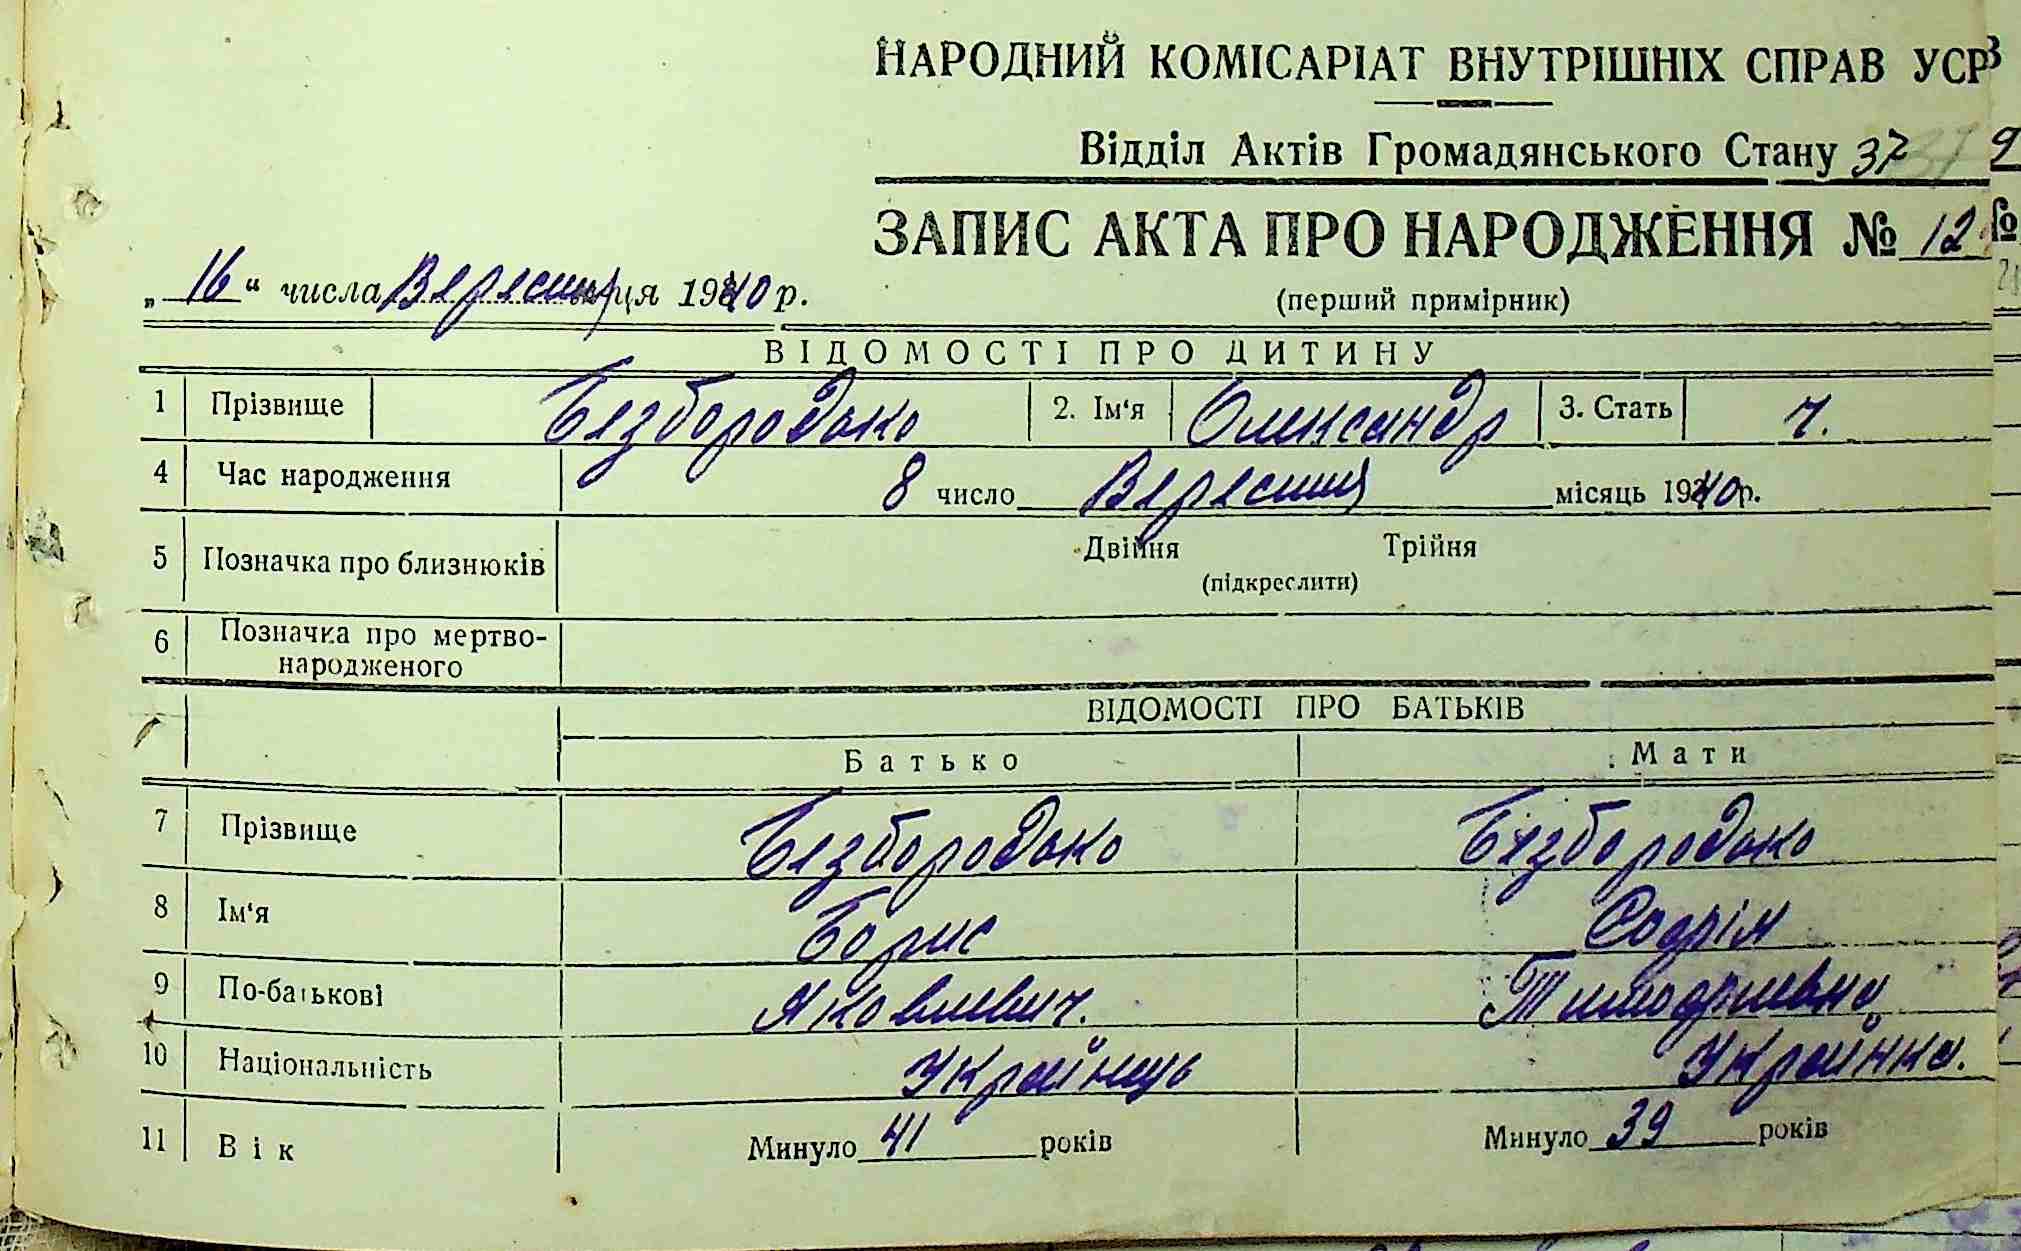 НАРОДНИЙ КОМІСАРІАТ ВНУТРІШНІХ СПРАВ УСР
Відділ Актів Громадянського Стану 37
ЗАПИС АКТА ПРО НАРОДЖЕННЯ № 12
„16“ числа Вересня ця 1940 р.
(перший примірник)
ВІДОМОСТІ ПРО ДИТИНУ
1 Прізвище Безбородько 2. Ім‘я Олександр 3. Стать ч.
4 Час народження 8 число Вересня місяць 1940 р.
5 Позначка про близнюків Двійня Трійня
(підкреслити)
6 Позначка про мертво-
народженого
ВІДОМОСТІ ПРО БАТЬКІВ
Батько Мати
7 Прізвище Безбородько Безбородько
8 Ім‘я Борис Софія
9 По-батькові Яковлевич. Тимофиевна
10 Національність Українць Українка.
11 Вік Минуло 41 років Минуло 39 років